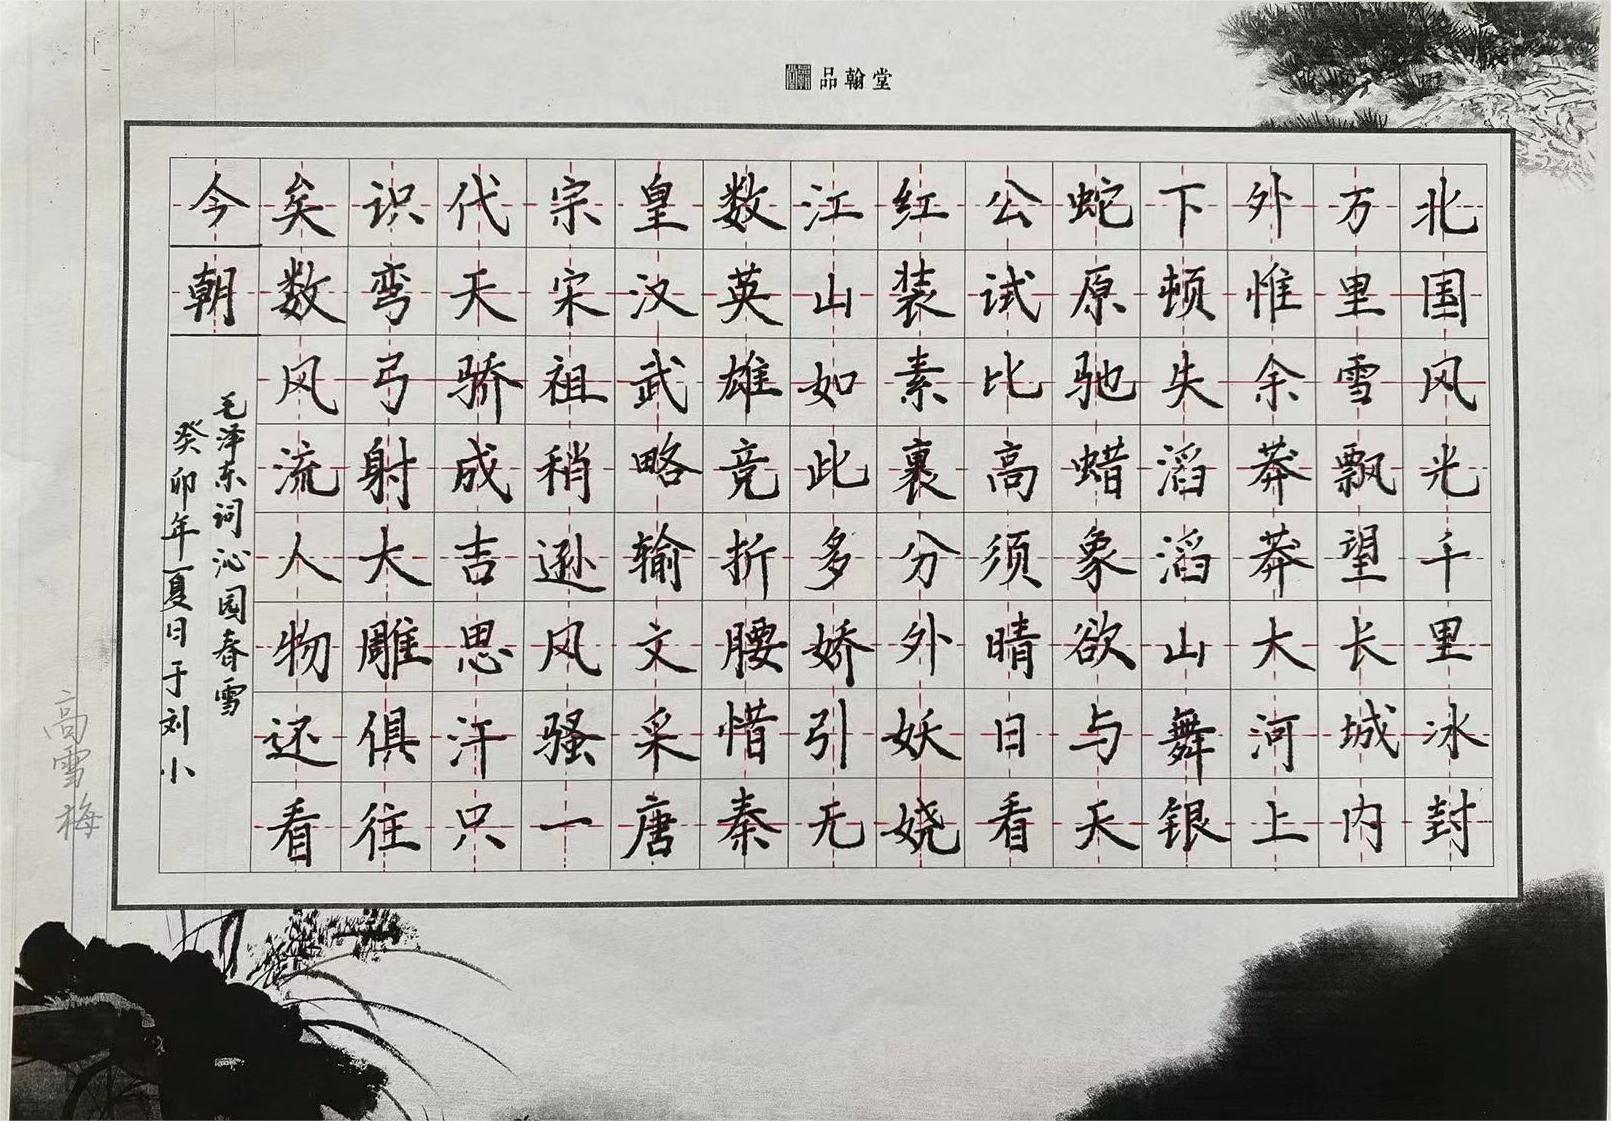 品翰堂
北国风光千里冰封
万里雪飘望长城内
外惟余莽莽大河上
下顿失滔滔山舞银
蛇原驰蜡象欲与天
公试比高须晴日看
红装素裹分外妖娆
江山如此多娇引无
数英雄竞折腰惜秦
皇汉武略输文采唐
宗宋祖稍逊风骚一
代天骄成吉思汗只
识弯弓射大雕俱往
矣数风流人物还看
今朝
毛泽东词沁园春雪
癸卯年夏日于刘小
高雪梅